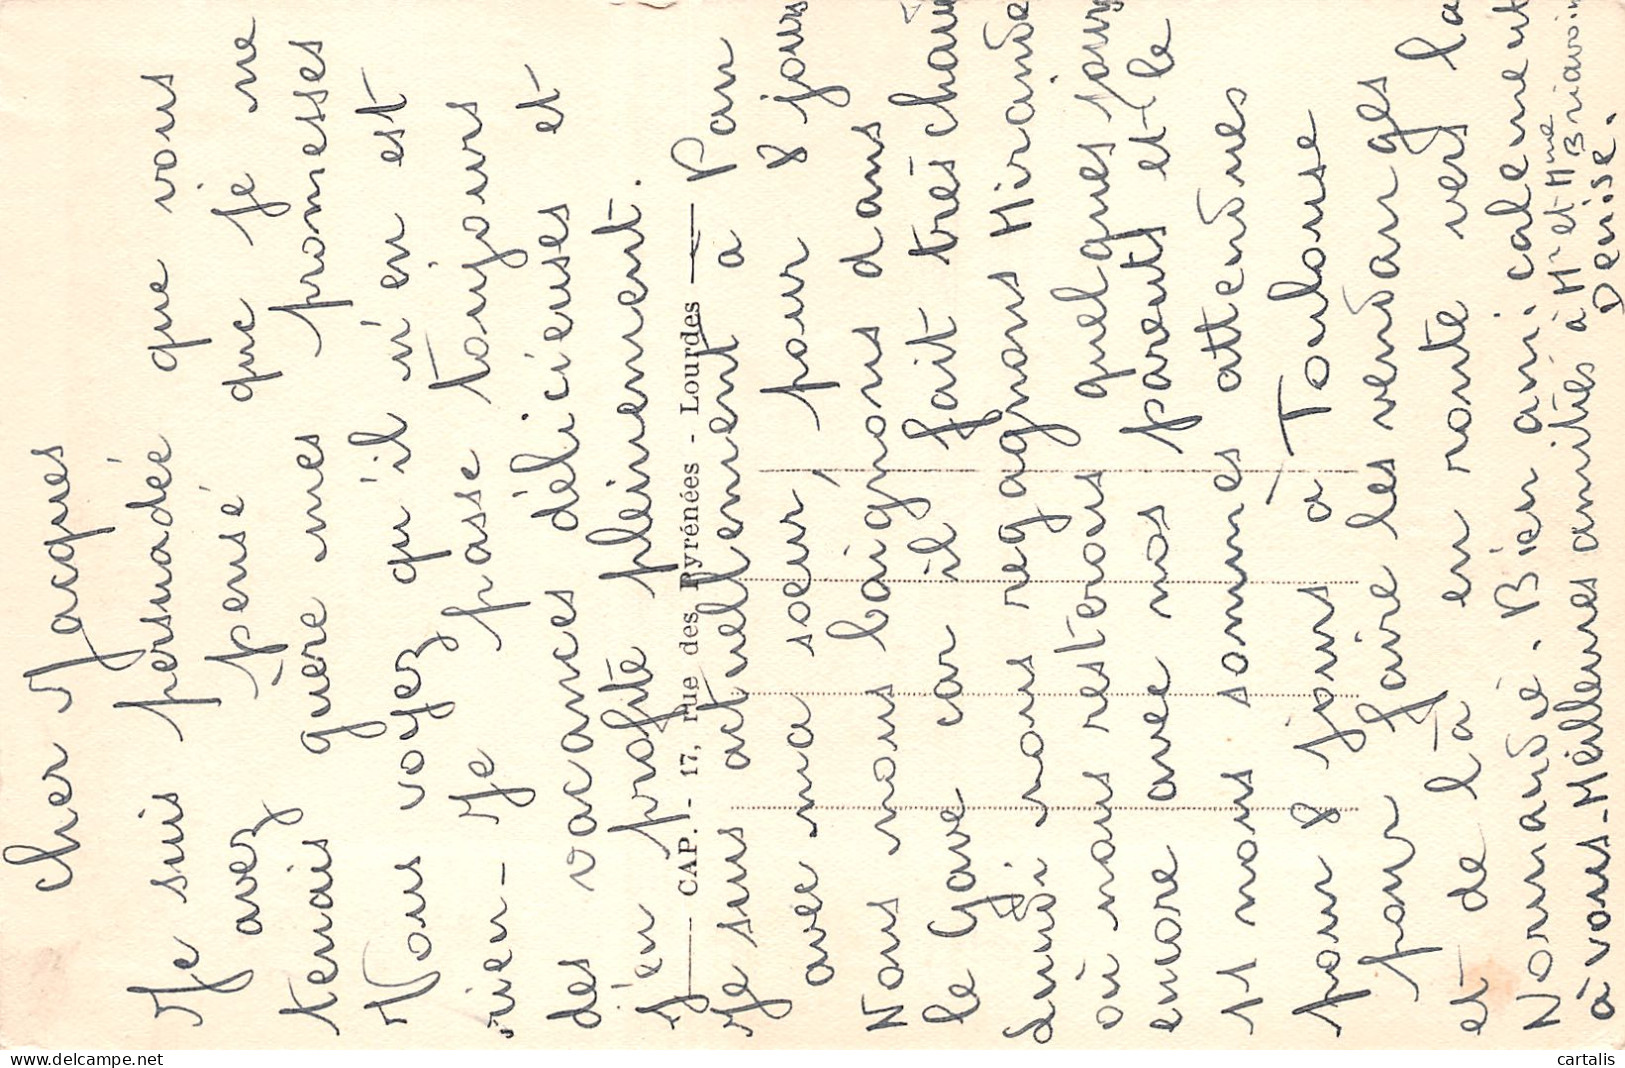 Cher Jacques
Je suis persuadée que vous
avez pensé que je ne
tenais guère mes promesses
Vous voyez qu'il n'en est
rien - Je passe toujours
des vacances délicieuses et
j'en profite pleinement.
CAP. - 17, rue des Pyrénées - Lourdes
Je suis actuellement à Pau
avec ma soeur, pour 8 jours
Nous nous baignons dans
le Gave car il fait très chaud
Lundi nous regagnons Mirande
où nous resterons quelques jours
encore avec nos parents et le
11 nous sommes attendues
pour 8 jours à Toulouse
pour faire les vendanges
et de là en route vers la
Normandie. Bien amicalement
à vous - Meilleures amitiés à Mr et Mme
Denise.
delcampe.net
cartalis